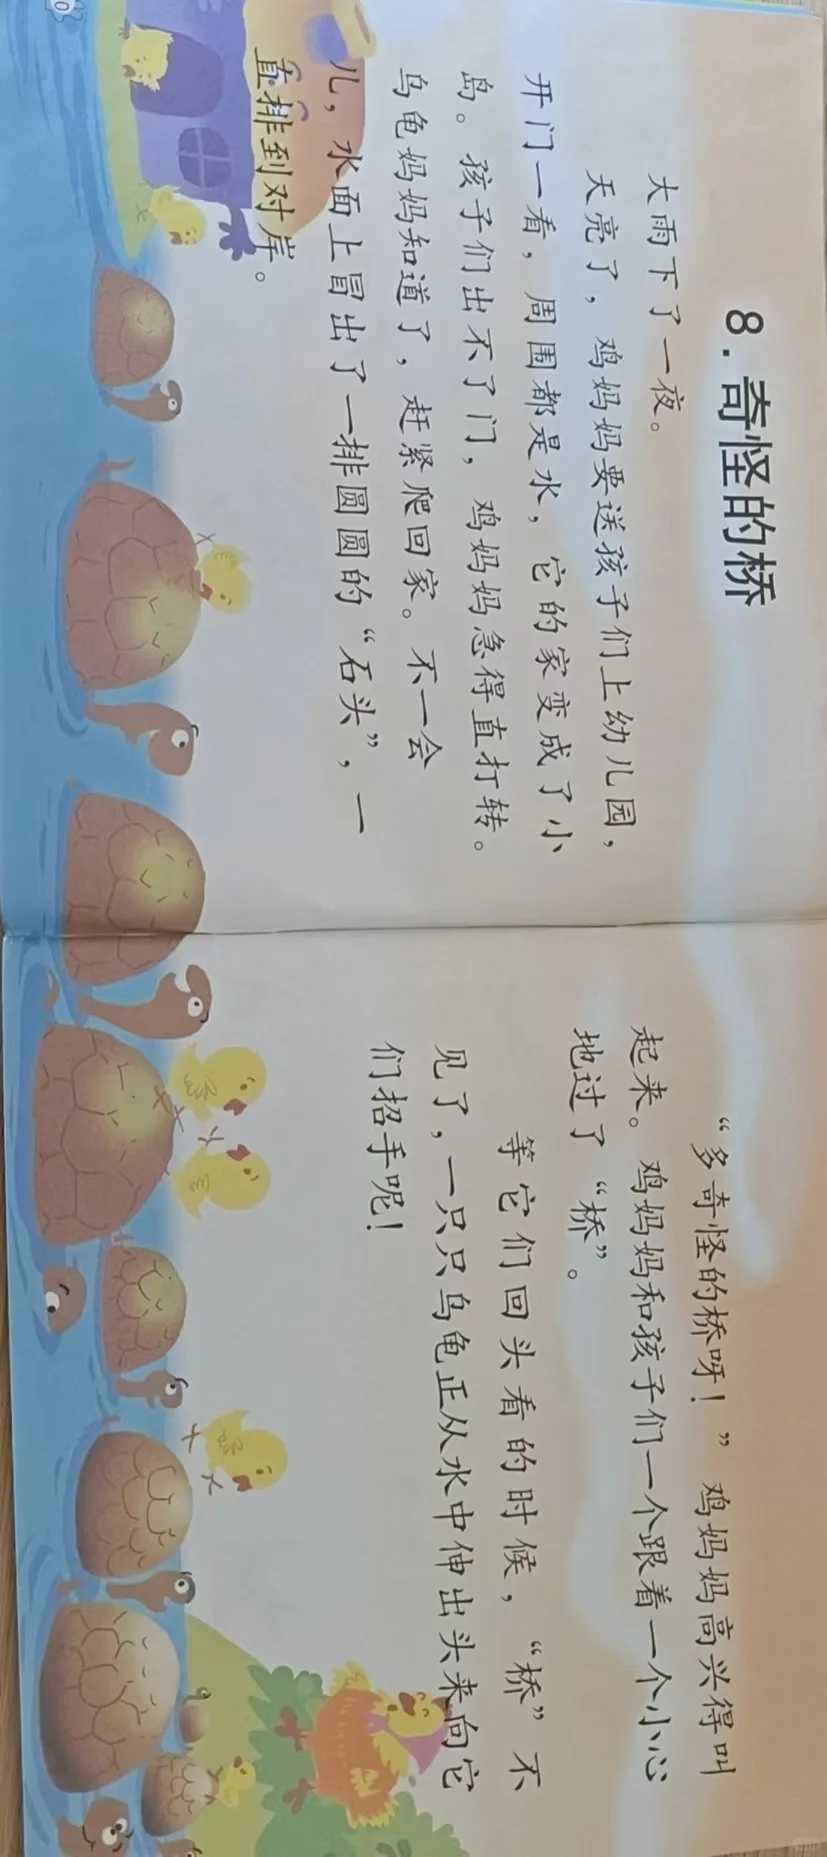 8.奇怪的桥
大雨下了一夜。
天亮了，鸡妈妈要送孩子们上幼儿园，
开门一看，周围都是水，它的家变成了小
岛。孩子们出不了门，鸡妈妈急得直打转。
乌龟妈妈知道了，赶紧爬回家。不一会
儿，水面上冒出了一排圆圆的“石头”，一
直排到对岸。
“多奇怪的桥呀！”鸡妈妈高兴得叫
起来。鸡妈妈和孩子们一个跟着一个小心
地过了“桥”。
等它们回头看的时候，“桥”不
见了，一只只乌龟正从水中伸出头来向它
们招手呢！